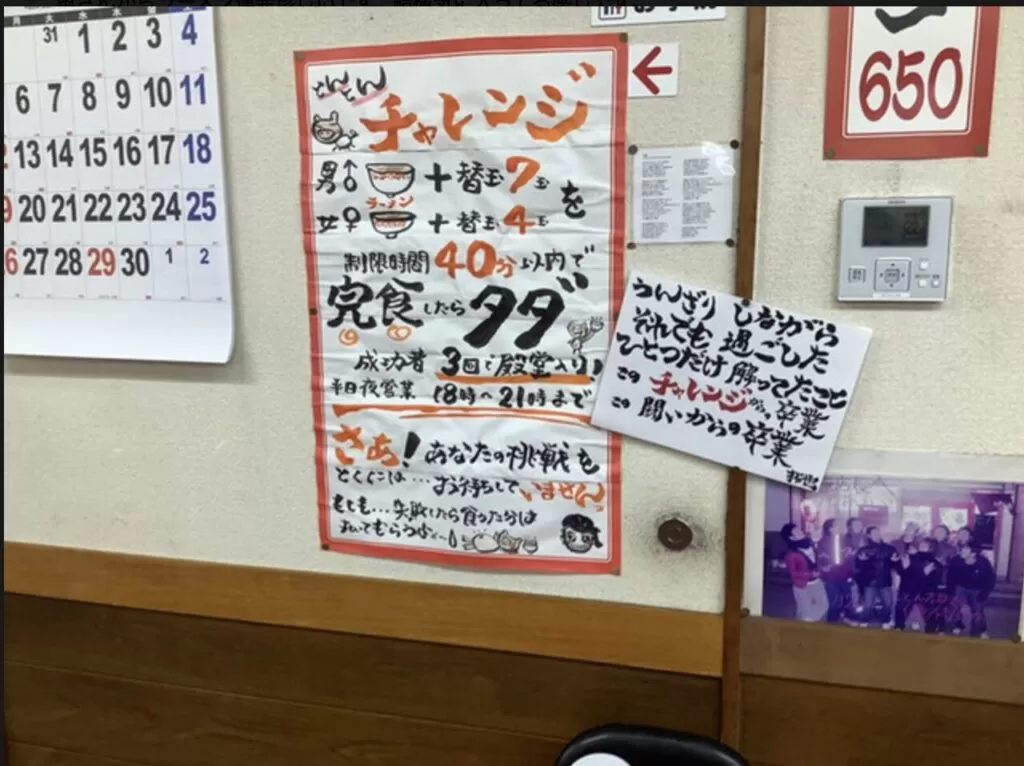 月 火 水 木 金 土
31 1 2 3 4
6 7 8 9 10 11
13 14 15 16 17 18
19 20 21 22 23 24 25
26 27 28 29 30 1 2
とんとん
チャレンジ
男♂ ラーメン + 替玉 7玉を
女♀ + 替玉 4玉
制限時間 40分以内で
完食したら タダ
成功者 3回で殿堂入り!
平日夜営業 18時〜21時まで
さあ! あなたの挑戦を
とくには…お待ちしていませんっ
もしも…失敗したら食った分は
払ってもらうぶぃ〜!
うんざりしながら
それでも過ごした
ひとつだけ解ってたこと
この チャレンジからの卒業
この 闘いからの卒業
650